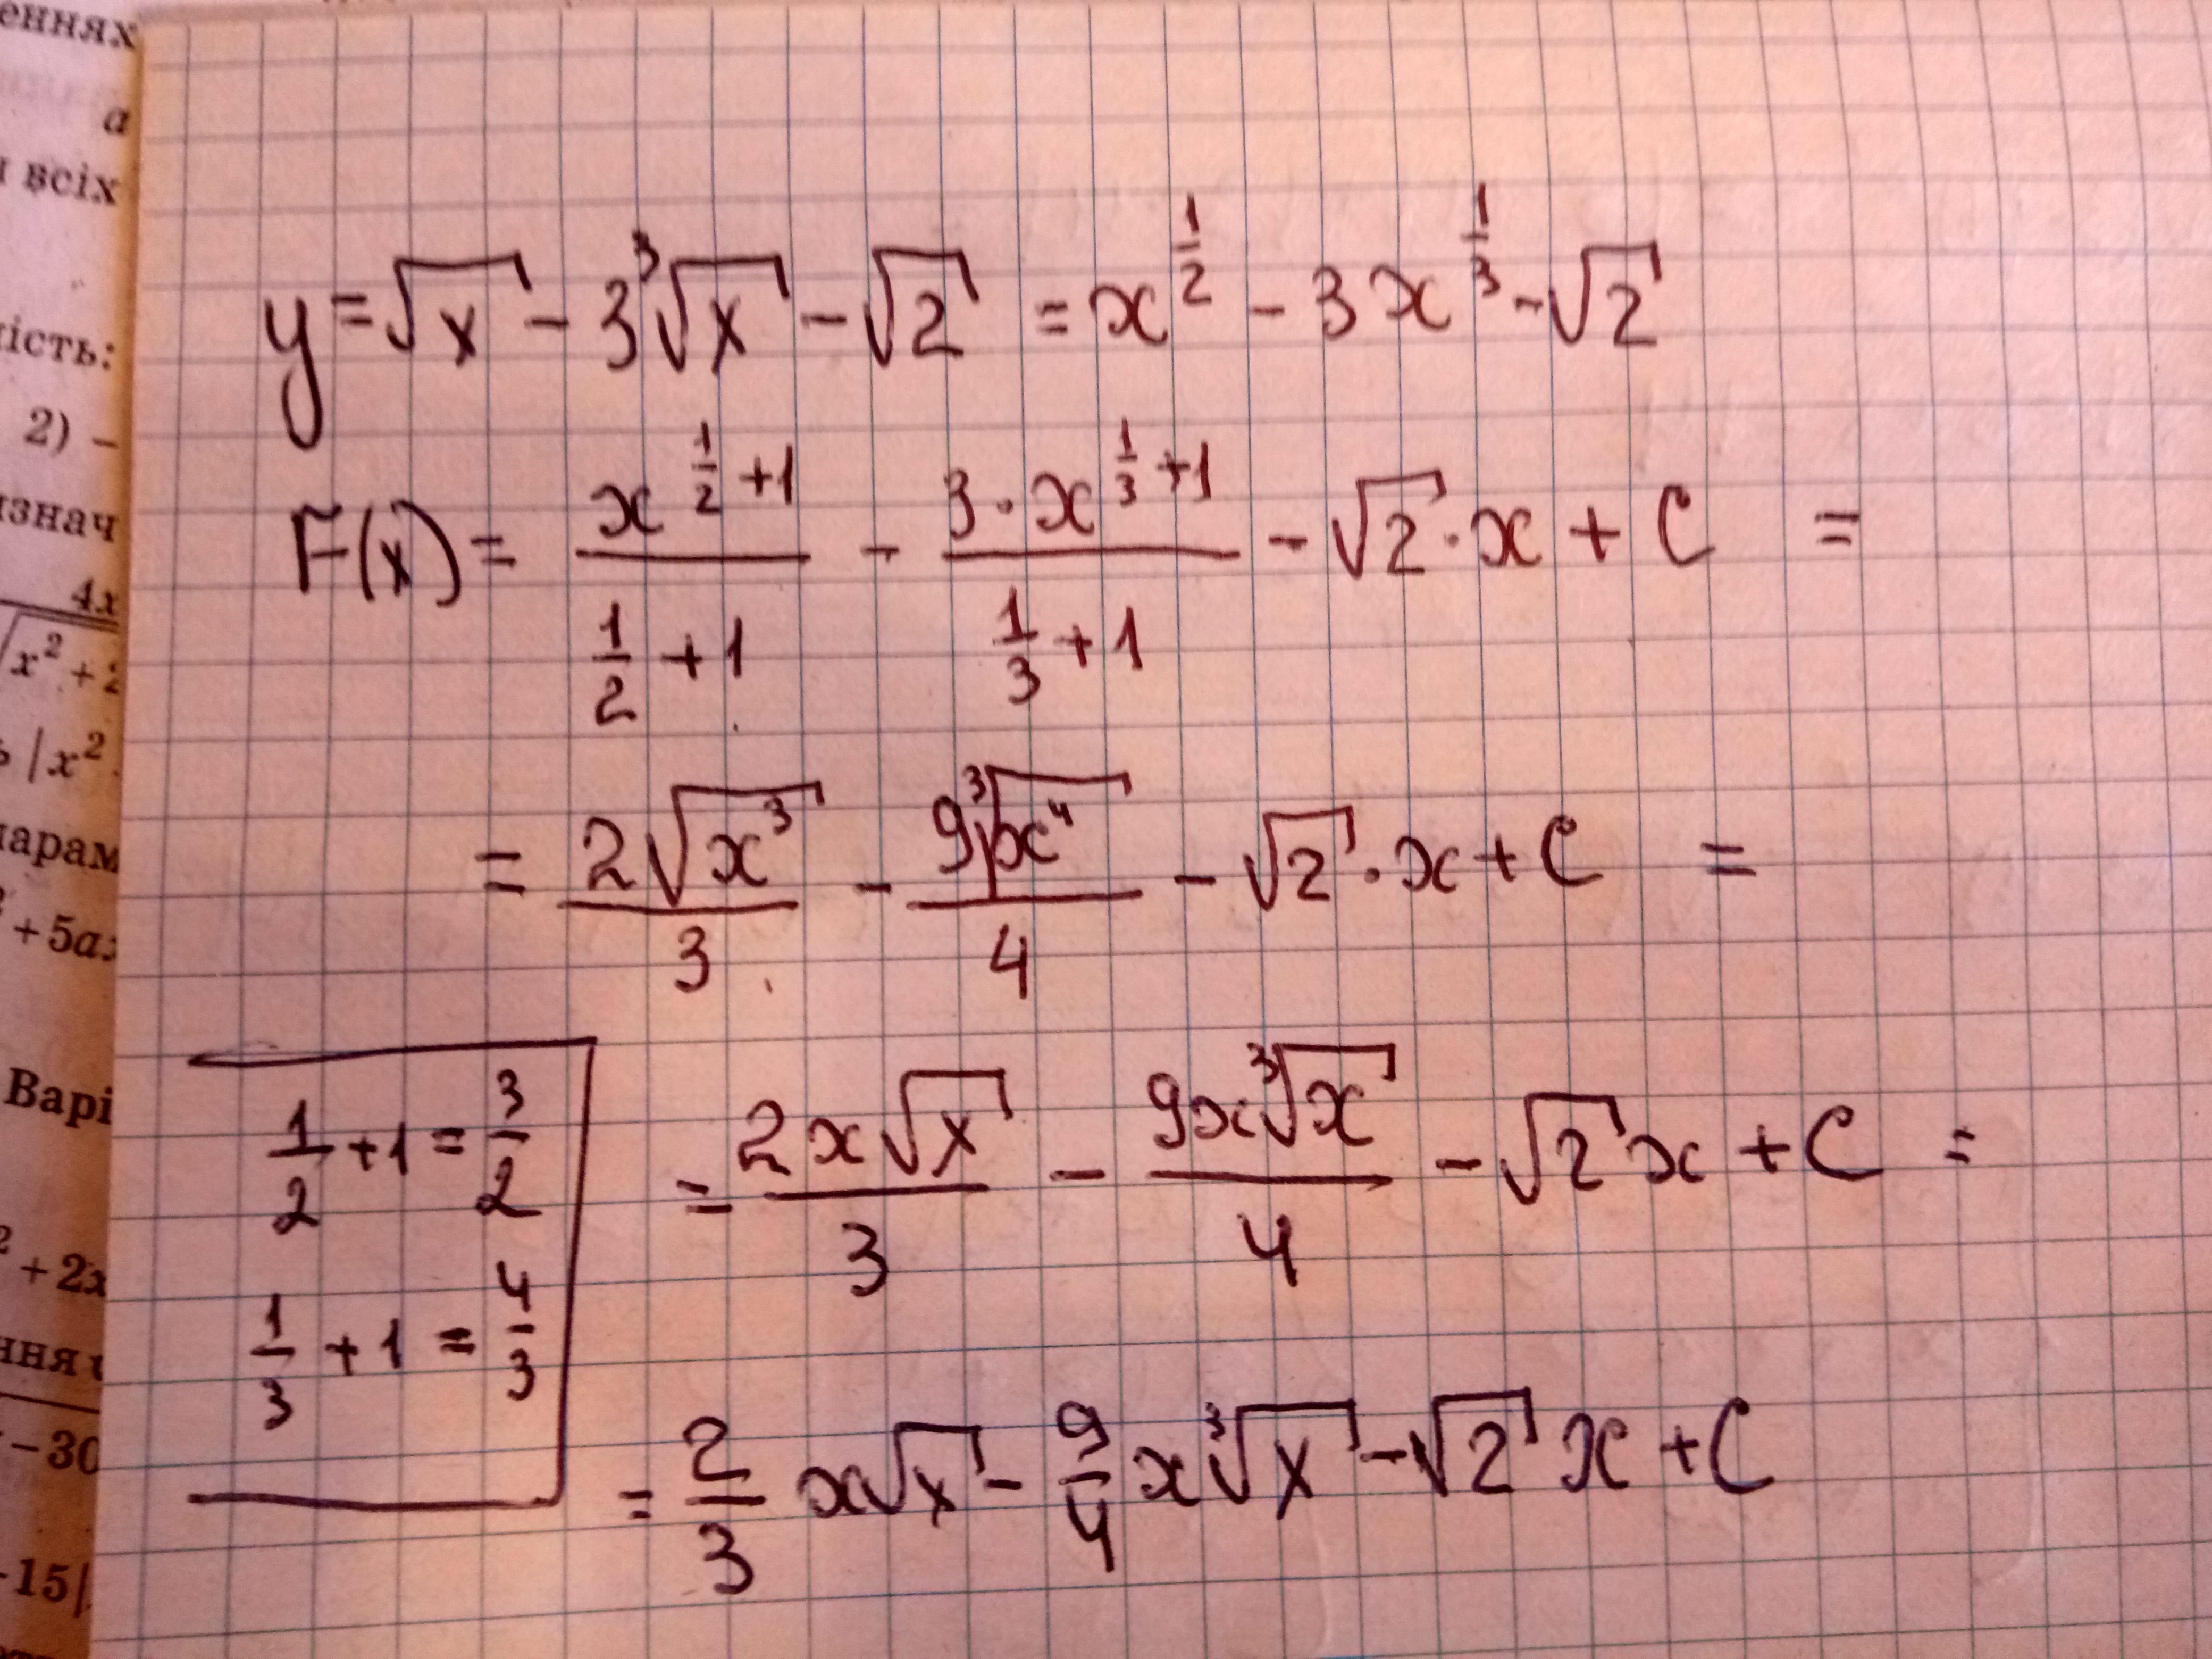 еннях
а
всіх
ість:
2) –
знач
4x
√x² + 2
|x²
парам
+5a
Варі
+ 2x
ння
–30
15|
y = √x - 3∛x - √2 = x^(1/2) - 3x^(1/3) - √2
F(x) = x^(1/2 + 1) / (1/2 + 1) - 3·x^(1/3 + 1) / (1/3 + 1) - √2·x + C =
= 2√x³ / 3 - 9∛x⁴ / 4 - √2·x + C =
1/2 + 1 = 3/2
1/3 + 1 = 4/3
= 2x√x / 3 - 9x∛x / 4 - √2x + C =
= 2/3 x√x - 9/4 x∛x - √2 x + C